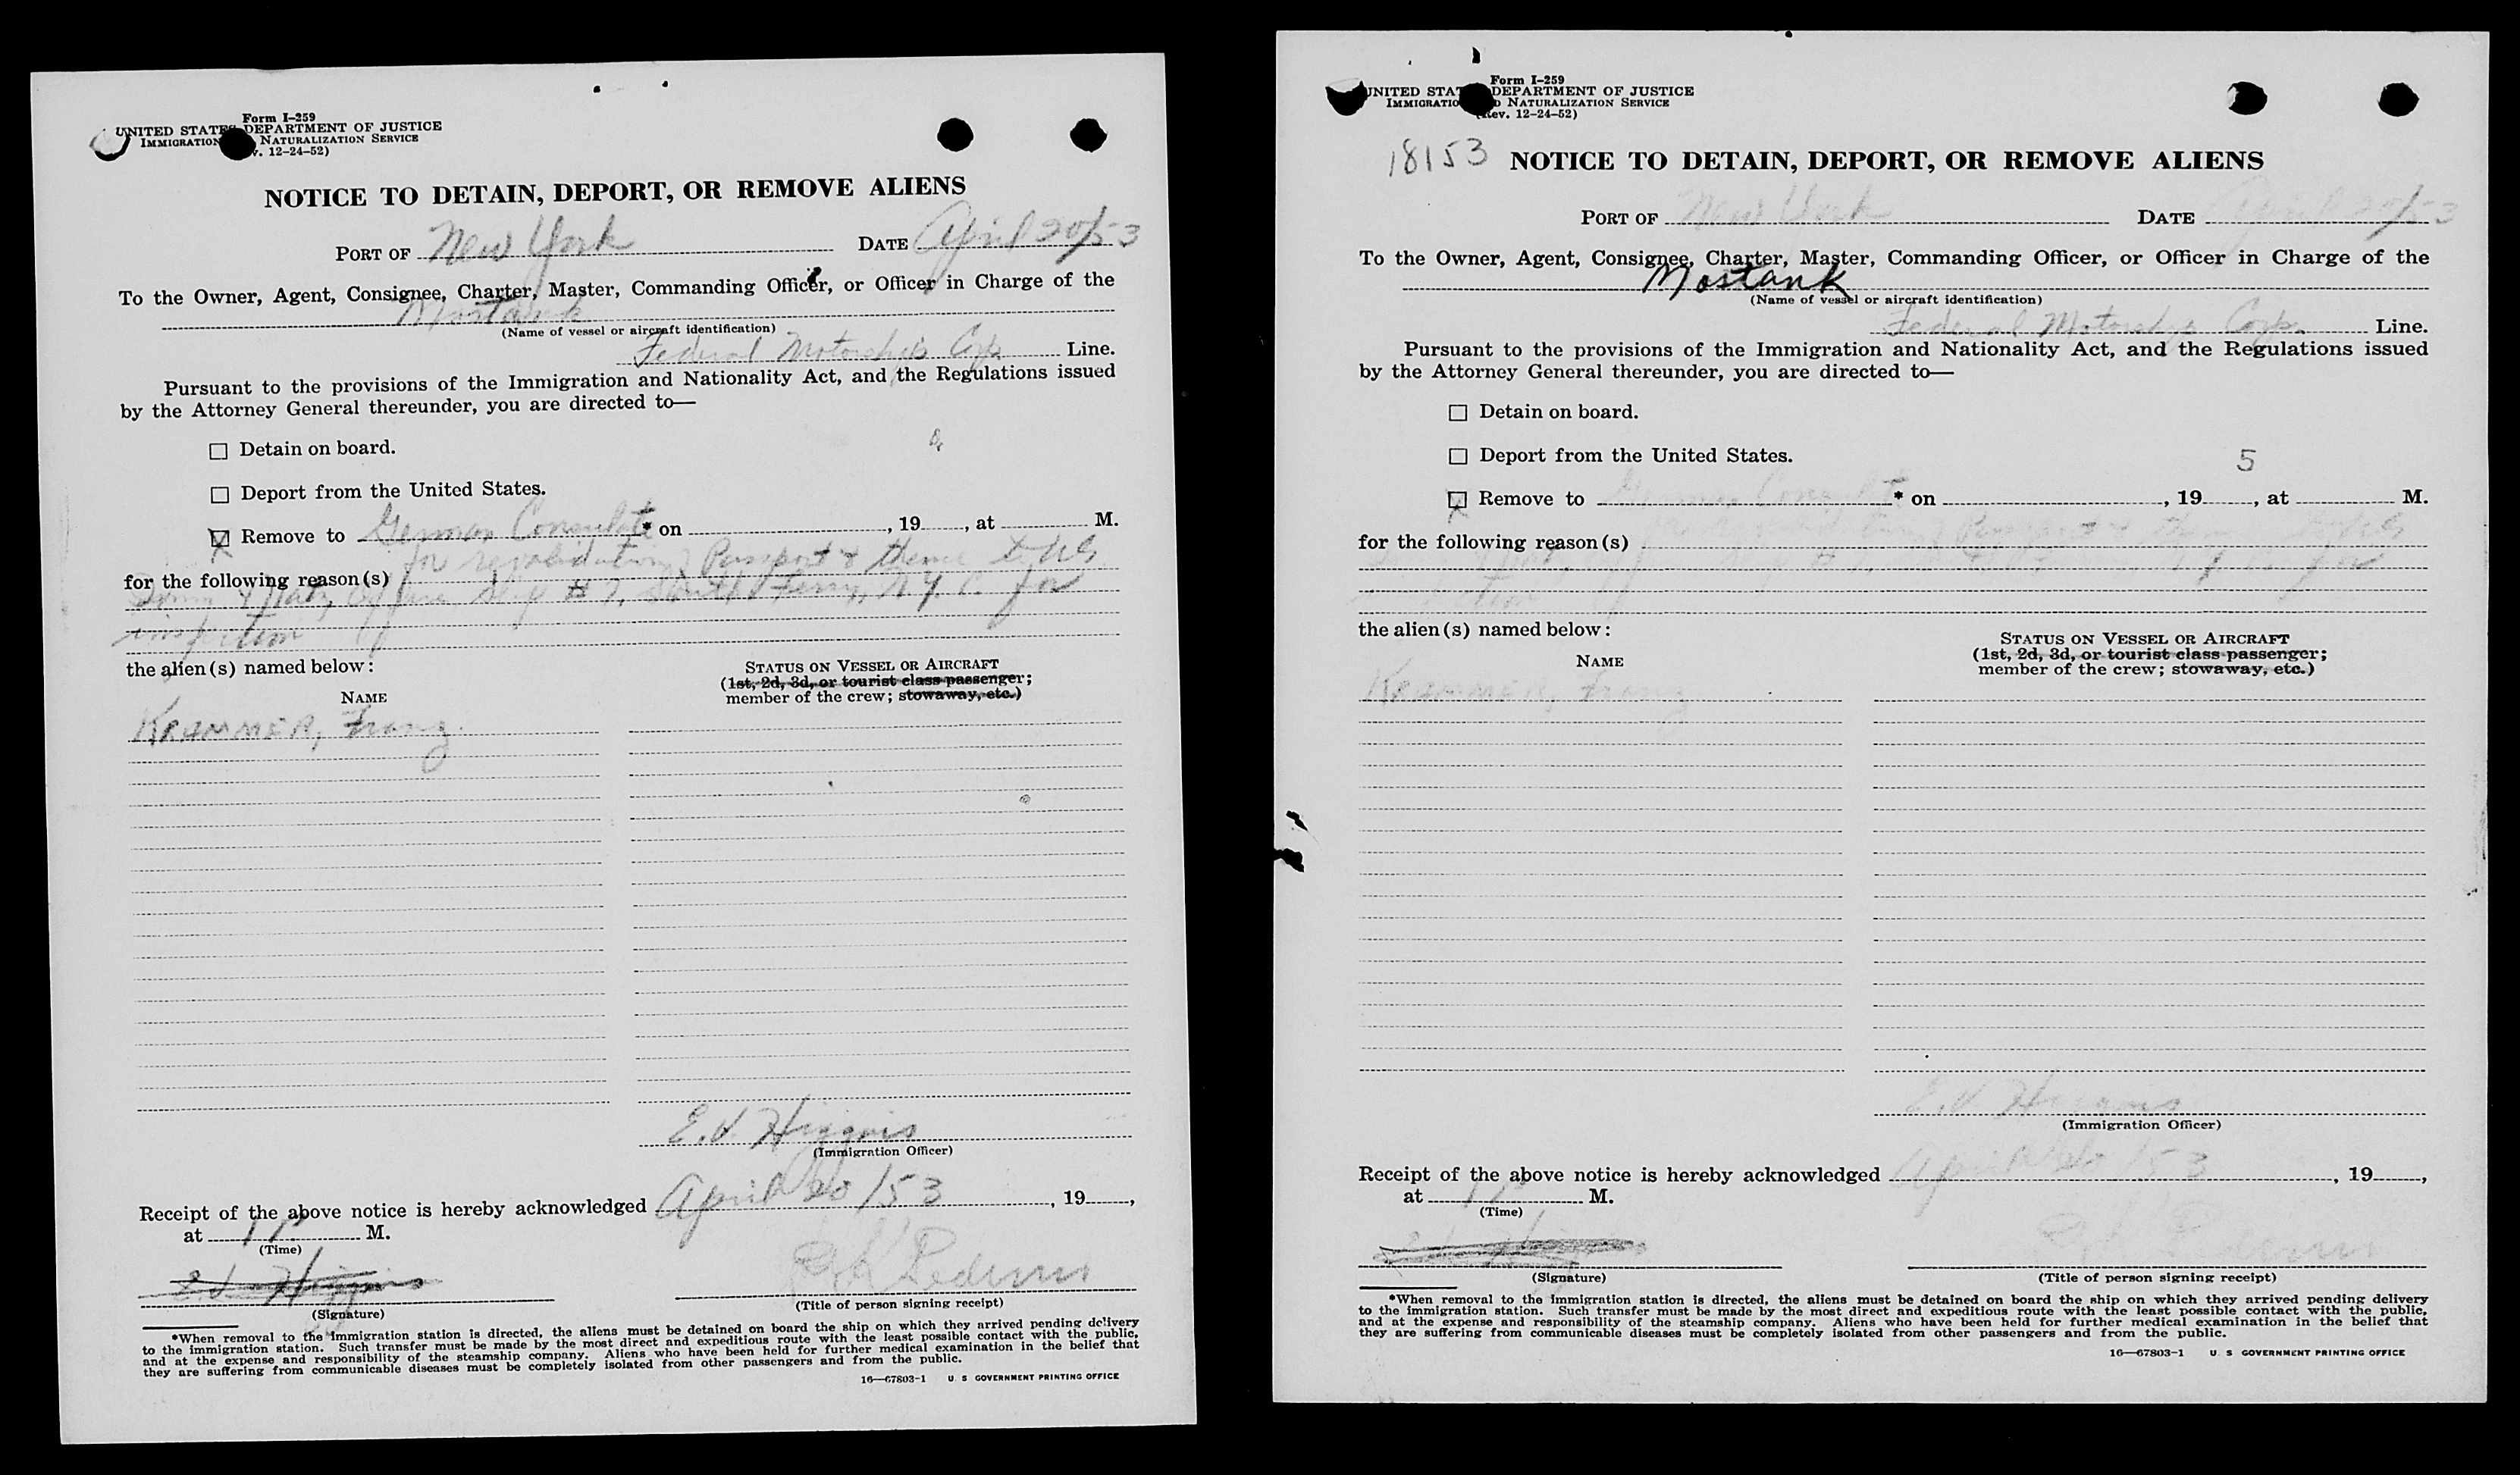 Form I-259
UNITED STATES DEPARTMENT OF JUSTICE
IMMIGRATION NATURALIZATION SERVICE
v. 12-24-52)
NOTICE TO DETAIN, DEPORT, OR REMOVE ALIENS
PORT OF New York DATE April 20/53
To the Owner, Agent, Consignee, Charter, Master, Commanding Officer, or Officer in Charge of the
Mostank
(Name of vessel or aircraft identification)
Federal Motorship Corp. Line.
Pursuant to the provisions of the Immigration and Nationality Act, and the Regulations issued
by the Attorney General thereunder, you are directed to—
Detain on board.
Deport from the United States.
Remove to German Consulate * on , 19 , at M.
for revalidation of Passport & thence to US
for the following reason(s)
Imm & Natz Office Slip # 7, South Ferry, N.Y.C. for
inspection
the alien(s) named below:
STATUS ON VESSEL OR AIRCRAFT
(1st, 2d, 3d, or tourist class passenger;
member of the crew; stowaway, etc.)
NAME
KRAMMER, Franz
E.V. Higgins
(Immigration Officer)
Receipt of the above notice is hereby acknowledged April 20/53 , 19 ,
at 1 P. M.
(Time)
E.V. Higgins
(Signature)
(Title of person signing receipt)
*When removal to the immigration station is directed, the aliens must be detained on board the ship on which they arrived pending delivery
to the immigration station. Such transfer must be made by the most direct and expeditious route with the least possible contact with the public,
and at the expense and responsibility of the steamship company. Aliens who have been held for further medical examination in the belief that
they are suffering from communicable diseases must be completely isolated from other passengers and from the public.
16—67803-1 U S GOVERNMENT PRINTING OFFICE
Form I-259
UNITED STATES DEPARTMENT OF JUSTICE
IMMIGRATION NATURALIZATION SERVICE
(Rev. 12-24-52)
18153
NOTICE TO DETAIN, DEPORT, OR REMOVE ALIENS
PORT OF New York DATE April 20/53
To the Owner, Agent, Consignee, Charter, Master, Commanding Officer, or Officer in Charge of the
Mostank
(Name of vessel or aircraft identification)
Federal Motorship Corp. Line.
Pursuant to the provisions of the Immigration and Nationality Act, and the Regulations issued
by the Attorney General thereunder, you are directed to—
Detain on board.
Deport from the United States.
5
Remove to German Consulate * on , 19 , at M.
Passport &
for the following reason(s)
for
the alien(s) named below:
STATUS ON VESSEL OR AIRCRAFT
(1st, 2d, 3d, or tourist class passenger;
member of the crew; stowaway, etc.)
NAME
KRAMMER, Franz
E.V. Higgins
(Immigration Officer)
Receipt of the above notice is hereby acknowledged April 20/53 , 19 ,
at 1 P. M.
(Time)
(Signature)
(Title of person signing receipt)
*When removal to the immigration station is directed, the aliens must be detained on board the ship on which they arrived pending delivery
to the immigration station. Such transfer must be made by the most direct and expeditious route with the least possible contact with the public,
and at the expense and responsibility of the steamship company. Aliens who have been held for further medical examination in the belief that
they are suffering from communicable diseases must be completely isolated from other passengers and from the public.
16—67803-1 U S GOVERNMENT PRINTING OFFICE